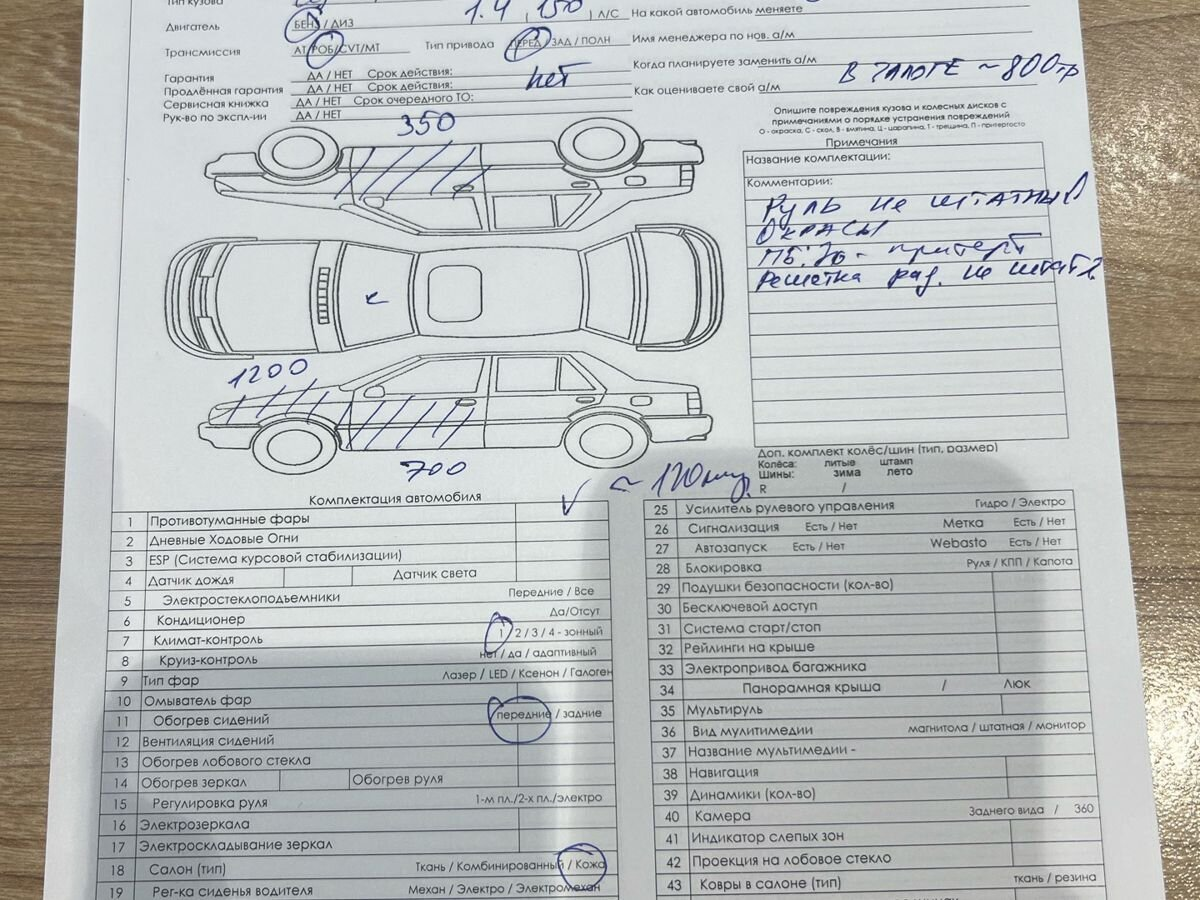 Тип кузова
1.4 , 150 ) Л/С На какой автомобиль меняете
Двигатель БЕН / ДИЗ
Трансмиссия АТ/РОБ/CVT/МТ Тип привода ПЕРЕД / ЗАД / ПОЛН Имя менеджера по нов. а/м
Когда планируете заменить а/м
Гарантия ДА / НЕТ Срок действия: нет
Продлённая гарантия ДА / НЕТ Срок действия:
Как оцениваете свой а/м В ЗАЛОГЕ ~ 800тр
Сервисная книжка ДА / НЕТ Срок очередного ТО:
Рук-во по экспл-ии ДА / НЕТ
Опишите повреждения кузова и колесных дисков с
примечаниями о порядке устранения повреждений
О - окраска, С - скол, В - вмятина, Ц - царапина, Т - трещина, П - притертость
350
Примечания
Название комплектации:
Комментарии:
Руль не штатный
Окрасы
ПБ: - притерт
Решетка рад. не штат.
1200
700
Доп. комплект колёс/шин (тип, размер)
Колёса: литые штамп
Шины: зима лето
R /
~ 120
Комплектация автомобиля
1 Противотуманные фары
2 Дневные Ходовые Огни
3 ESP (Система курсовой стабилизации)
4 Датчик дождя Датчик света
5 Электростеклоподъемники Передние / Все
6 Кондиционер Да/Отсут
7 Климат-контроль 1 / 2 / 3 / 4 - зонный
8 Круиз-контроль нет / да / адаптивный
9 Тип фар Лазер / LED / Ксенон / Галоген
10 Омыватель фар
11 Обогрев сидений передние / задние
12 Вентиляция сидений
13 Обогрев лобового стекла
14 Обогрев зеркал Обогрев руля
15 Регулировка руля 1-м пл./2-х пл./электро
16 Электрозеркала
17 Электроскладывание зеркал
18 Салон (тип) Ткань / Комбинированный / Кожа
19 Рег-ка сиденья водителя Механ / Электро / Электромехан
25 Усилитель рулевого управления Гидро / Электро
26 Сигнализация Есть / Нет Метка Есть / Нет
27 Автозапуск Есть / Нет Webasto Есть / Нет
28 Блокировка Руля / КПП / Капота
29 Подушки безопасности (кол-во)
30 Бесключевой доступ
31 Система старт/стоп
32 Рейлинги на крыше
33 Электропривод багажника
34 Панорамная крыша / Люк
35 Мультируль
36 Вид мулитимедии магнитола / штатная / монитор
37 Название мультимедии -
38 Навигация
39 Динамики (кол-во)
40 Камера Заднего вида / 360
41 Индикатор слепых зон
42 Проекция на лобовое стекло
43 Ковры в салоне (тип) ткань / резина